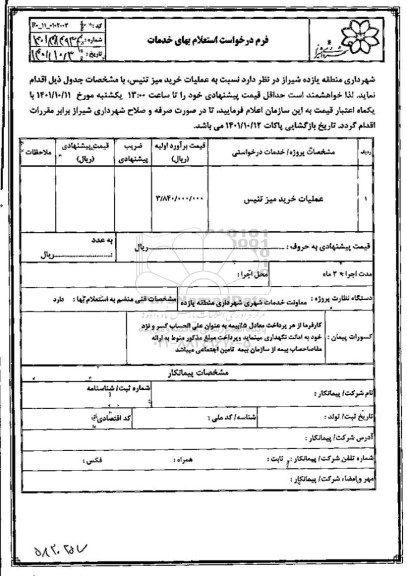 فرم درخواست استعلام بهای خدمات
کد :
شماره :
تاریخ : ۱۴۰۱/۱۰/۳
شهرداری منطقه یازده شیراز در نظر دارد نسبت به عملیات خرید میز تنیس، با مشخصات جدول ذیل اقدام
نماید. لذا خواهشمند است حداقل قیمت پیشنهادی خود را تا ساعت ۱۳:۰۰ یکشنبه مورخ ۱۴۰۱/۱۰/۱۱ با
یکماه اعتبار قیمت به این سازمان اعلام فرمایید، تا در صورت صرفه و صلاح شهرداری شیراز برابر مقررات
اقدام گردد. تاریخ بازگشایی پاکات ۱۴۰۱/۱۰/۱۲ می باشد.
ردیف
مشخصات پروژه/ خدمات درخواستی
قیمت برآورد اولیه (ریال)
ضریب پیشنهادی
قیمت پیشنهادی (ریال)
ملاحظات
۱
عملیات خرید میز تنیس
۳/۸۴۰/۰۰۰/۰۰۰
قیمت پیشنهادی به حروف : ......ریال
به عدد
......ریال
مدت اجرا: ۳ ماه
محل اجرا :
دستگاه نظارت پروژه :
معاونت خدمات شهری شهرداری منطقه یازده
مشخصات فنی منضم به استعلام بها : دارد
کسورات پیمان :
کارفرما از هر پرداخت معادل ۵٪ بیمه به عنوان علی الحساب کسر و نزد
خود به امانت نگهداری مینماید و پرداخت مبلغ مذکور منوط به ارائه
مفاصاحساب بیمه از سازمان بیمه تامین اجتماعی میباشد
مشخصات پیمانکار
نام شرکت/ پیمانکار :
شماره ثبت/ شناسنامه :
تاریخ ثبت/ تولد :
شناسه/ کد ملی :
کد اقتصادی :
آدرس شرکت/ پیمانکار :
شماره تلفن شرکت/ پیمانکار : ثابت :
همراه :
فکس :
مهر و امضاء شرکت/ پیمانکار :